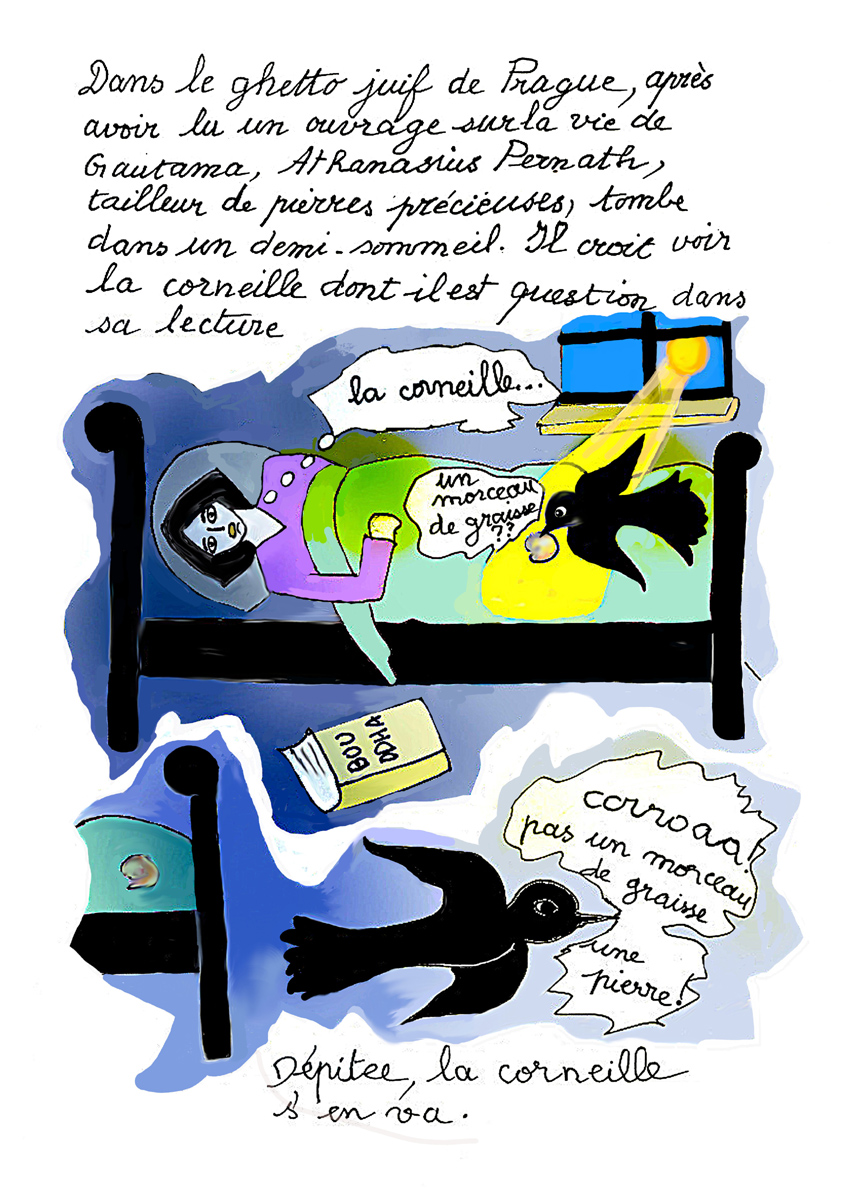 Dans le ghetto juif de Prague, après
avoir lu un ouvrage sur la vie de
Gautama, Athanasius Pernath,
tailleur de pierres précieuses, tombe
dans un demi-sommeil. Il croit voir
la corneille dont il est question dans
sa lecture
la corneille...
un
morceau
de graisse
??
BOU
DDHA
corroaa!
pas un morceau
de graisse
une
pierre!
Dépitee, la corneille
s'en va.